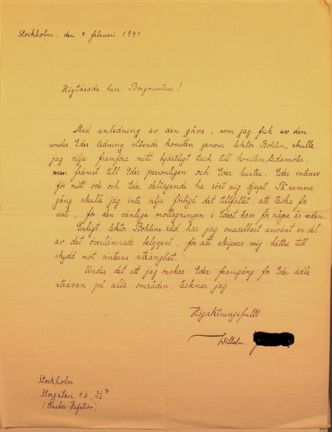 Stockholm, den 4 februari 1941
Högtärade herr Borgmästare!
Med anledning av den gåva, som jag fick av den
under Eder ledning stående komitén genom lektor Bohlin, skulle
jag vilja framföra mitt hjärtligt tack till komiténs ledamöter,
men främst till Eder personligen och Eder hustru. Eder intresse
för mitt öde och Eder deltagande ha rört mig djupt. På samma
gång skulle jag inte vilja förbigå det tillfället, att tacka för
, för den vänliga mottagningen i Edert hem för några år sedan.
Enligt lektor Bohlins råd har jag omedelbart använt en del
av det överlämnade beloppet, för att ekipera mig bättre till
skydd mot vinterns stränghet.
Under det att jag önskar Eder framgång för Eder ädla
strävan på alla områden, tecknar jag
Högaktningsfullt
Wilhelm
Stockholm
Storgatan